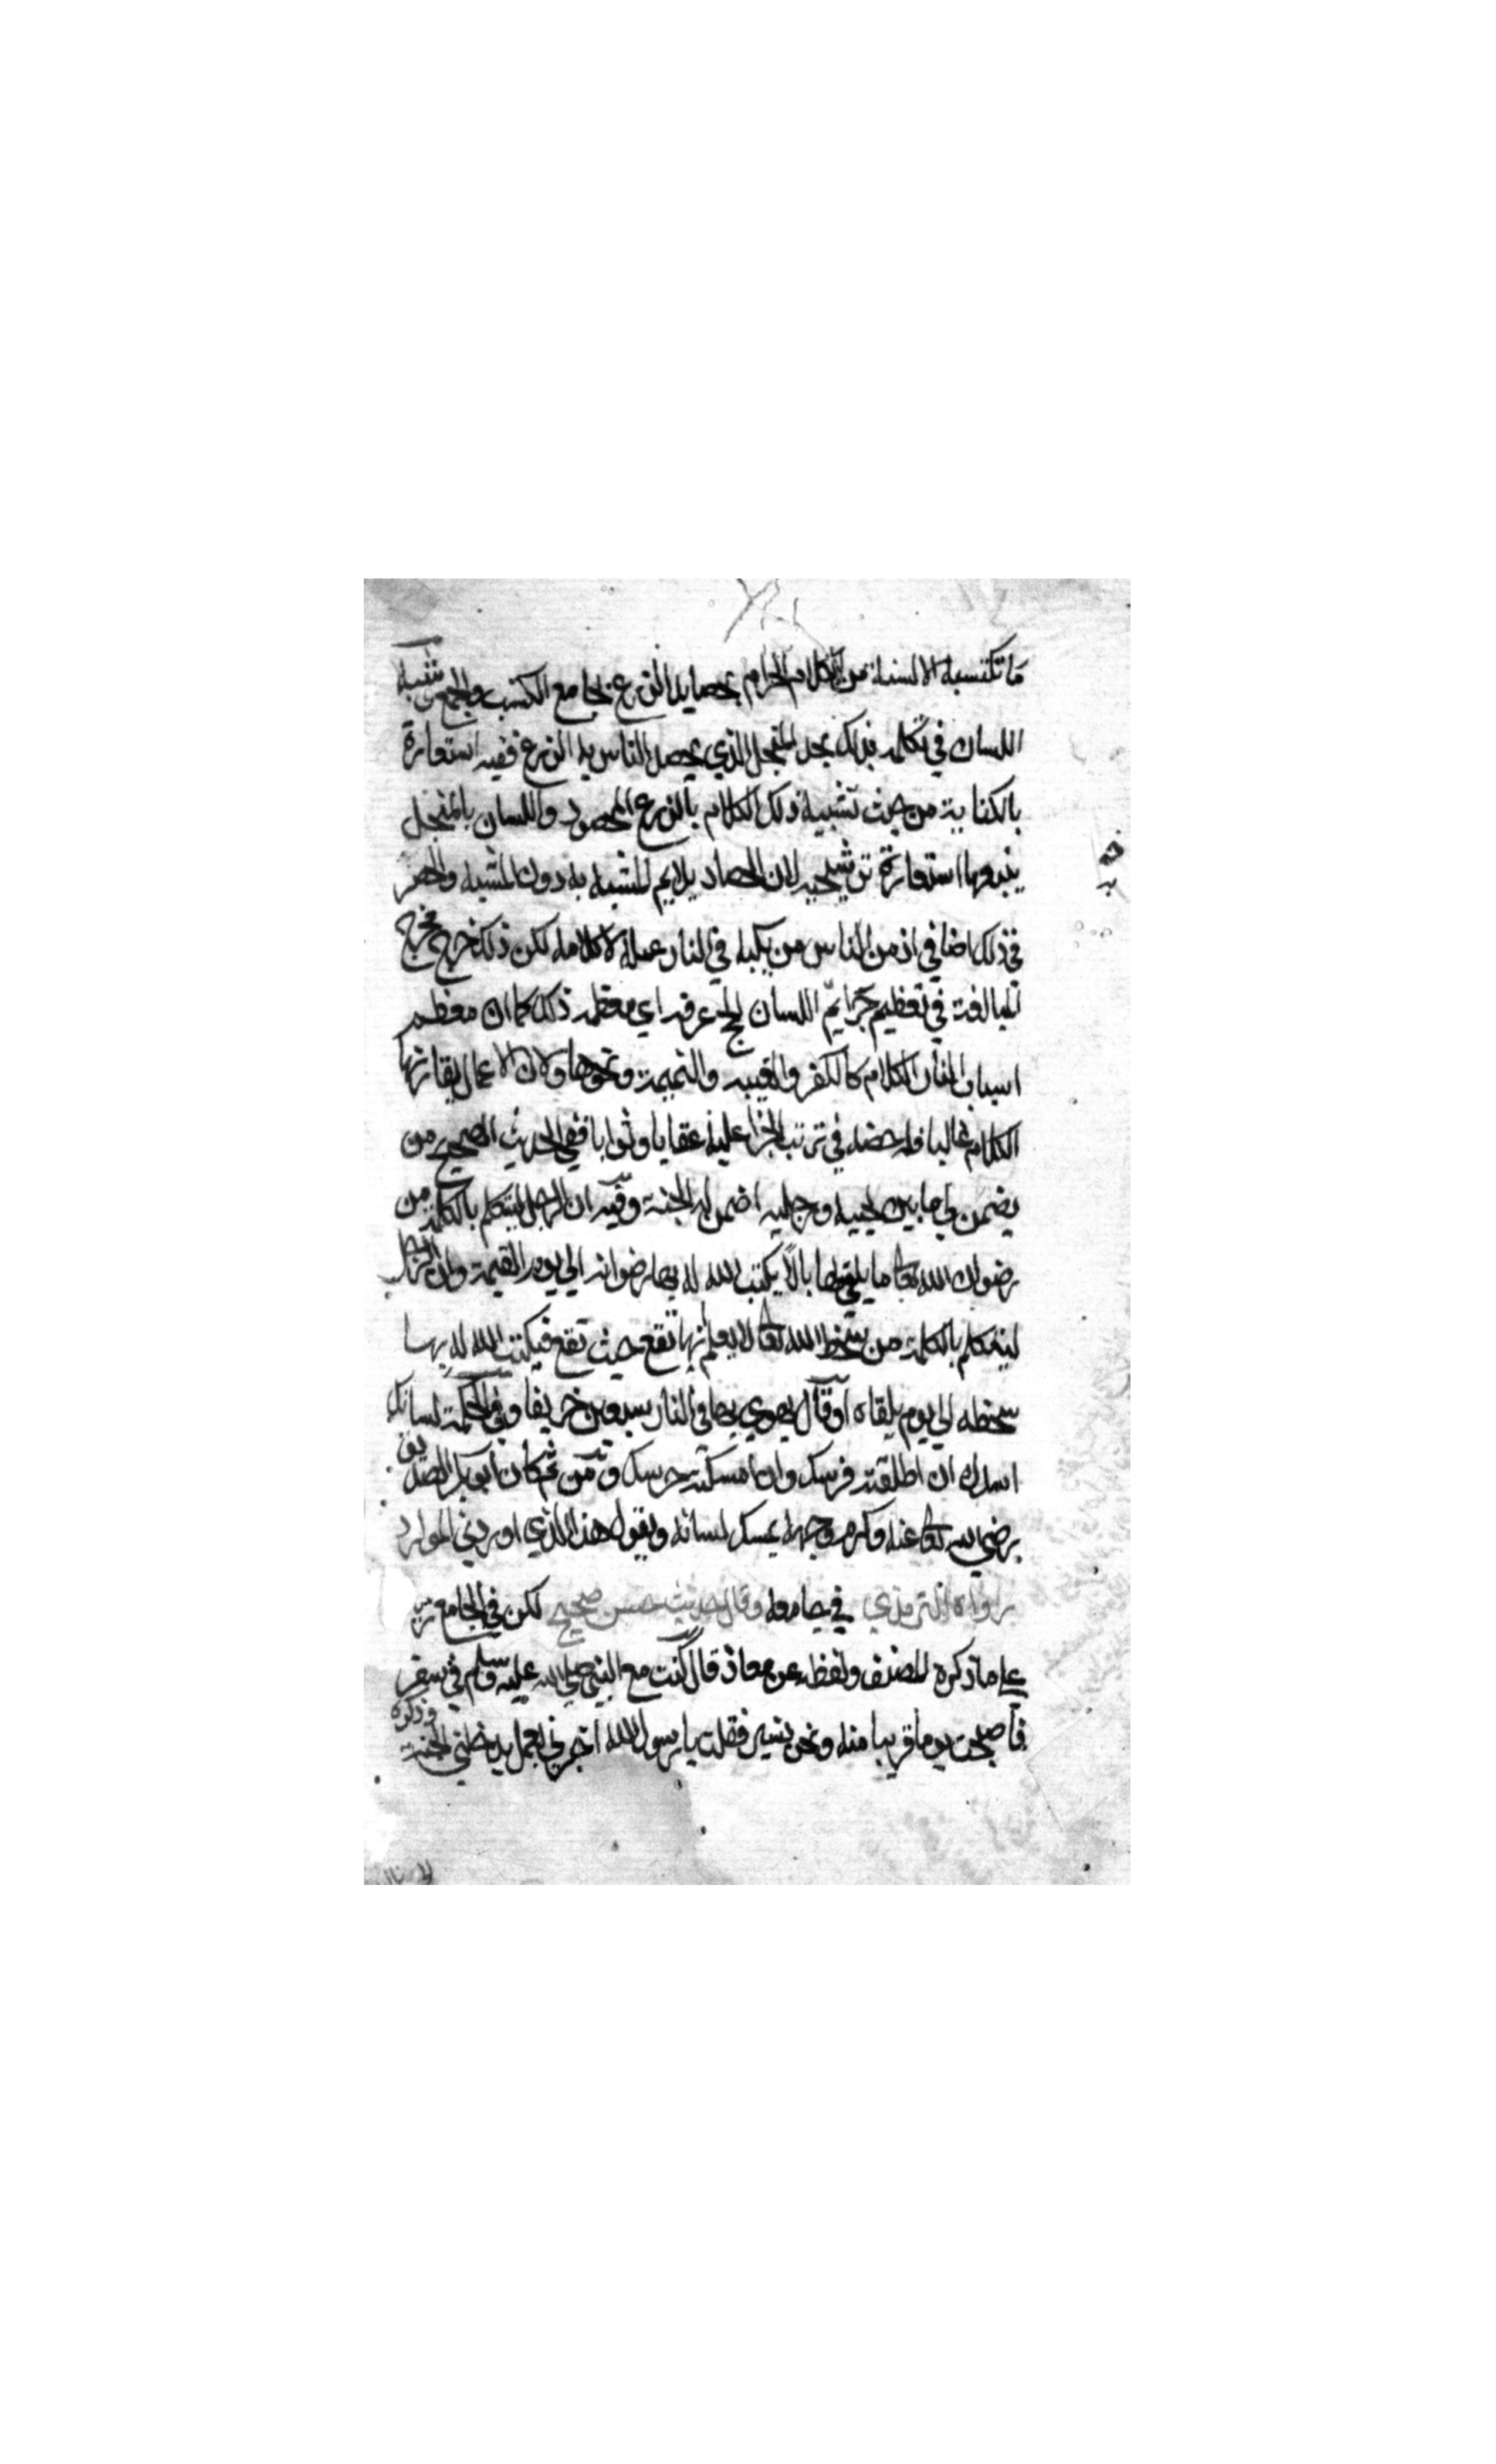 ما تكتسبه الالسنة من الكلام الحرام بحصايد الزرع بجامع الكسب والجمع وشبه
اللسان في تكلمه بذلك بحد المنجل الذي يحصد الناس به الزرع ففيه استعارة
بالكناية من حيث تشبيه ذلك الكلام بالزرع المحصود واللسان بالمنجل
يتبعها استعارة ترشيحية لان الحصاد يلايم المشبه به دون المشبه والحصر
في ذلك اضافي اذ من الناس من يكبه في النار عمله لا كلامه لكن ذلك خرج مخرج
المبالغة في تعظيم جرايم اللسان كالحج عرفة اي معظمه ذلك كما ان معظم
اسباب النار الكلام كالكفر والغيبه والنميمة ونحوها ولان الاعمال يقارنها
الكلام غالبا فله حصة في ترتب الجزا عليه عقابا وثوابا ففي الحديث الصحيح من
يضمن لي ما بين لحييه ورجليه اضمن له الجنة وفيه ان الرجل ليتكلم بالكلمة من
رضوان الله تعا ما يلقي لها بالا يكتب الله له بها رضوانه الي يوم القيمة وان الرجل
ليتكلم بالكلمة من سخط الله تعا لا يعلم انها تقع حيث تقع فيكتب الله له بها
سخطه الي يوم يلقاه او قال يهوي بها في النار سبعين خريفا وفي الحكمة لسانك
اسدك ان اطلقته فرسك وان امسكته حرسك ومن ثم كان ابو بكر الصديق
رضي الله تعا عنه وكرم وجهه يمسك لسانه ويقول هذا الذي اوردني الموارد
رواه الترمذي في جامعه وقال حديث حسن صحيح لكن في الجامع
علي ما ذكره المصنف ولفظه عن معاذ قال كنت مع النبي صلي الله عليه وسلم في سفر
فاصبحت يوما قريبا منه ونحن نسير فقلت يا رسول الله اخبرني بعمل يدخلني الجنة
وذكره